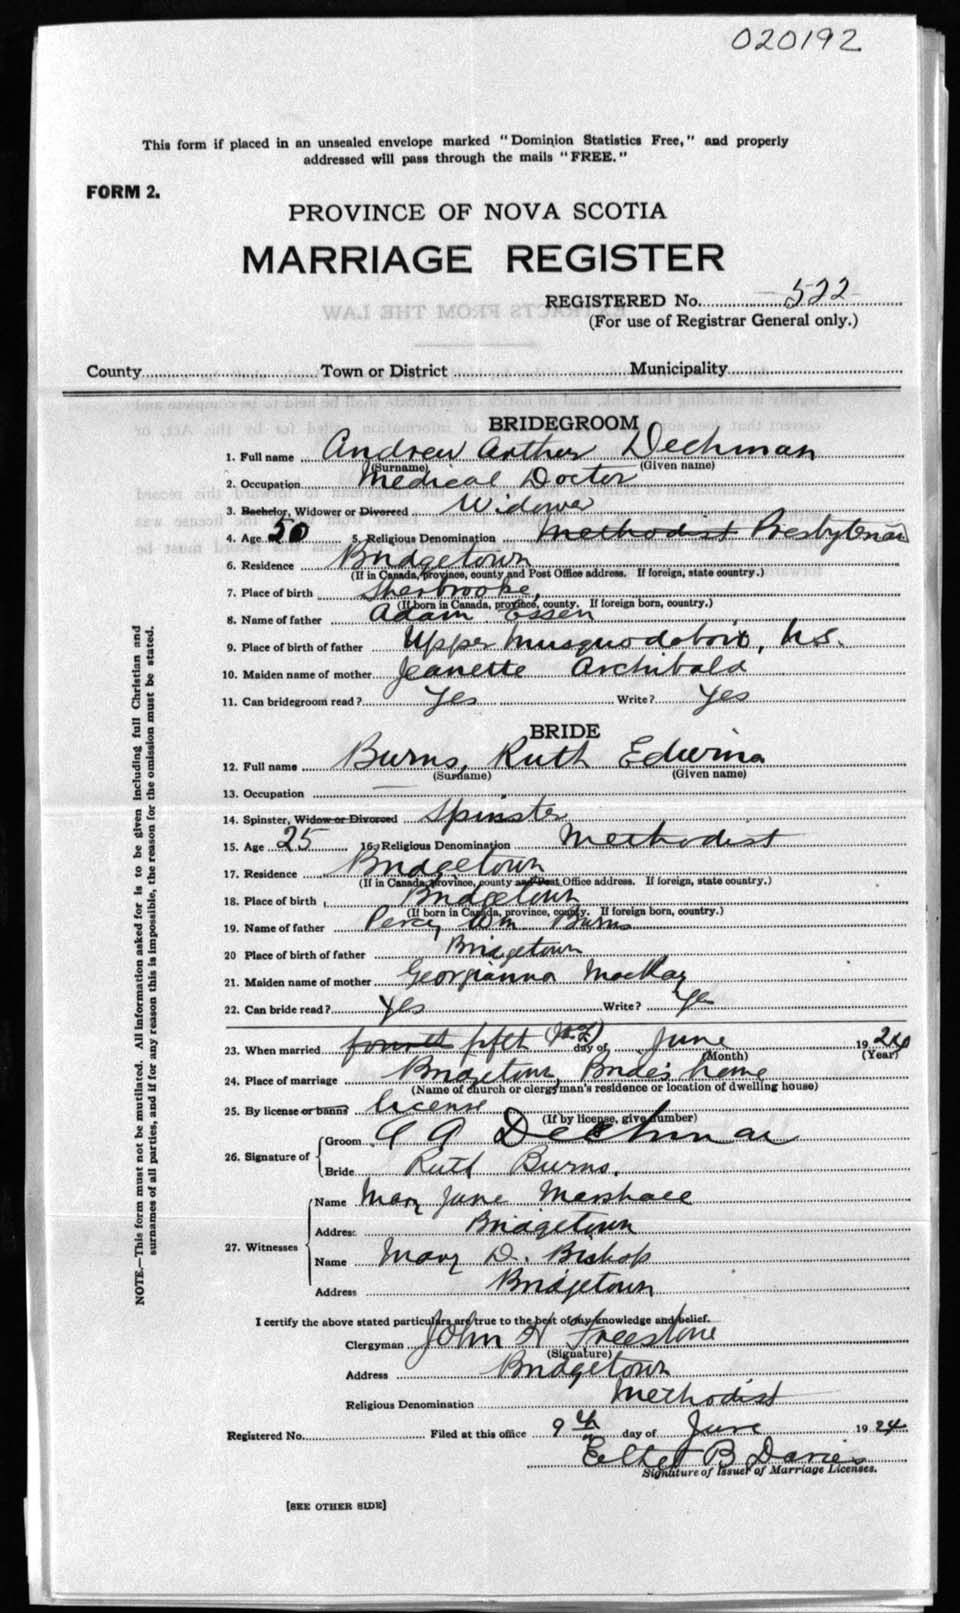 020192
This form if placed in an unsealed envelope marked "Dominion Statistics Free," and properly
addressed will pass through the mails "FREE."
FORM 2.
PROVINCE OF NOVA SCOTIA
MARRIAGE REGISTER
REGISTERED No. 522
(For use of Registrar General only.)
EXTRACTS FROM THE LAW
County Town or District Municipality
BRIDEGROOM
1. Full name Andrew Arthur Dechman
(Surname) (Given name)
2. Occupation Medical Doctor
3. Bachelor, Widower or Divorced Widower
4. Age 50 5. Religious Denomination Methodist Presbyterian
6. Residence Bridgetown
(If in Canada, province, county and Post Office address. If foreign, state country.)
7. Place of birth Sherbrooke,
(If born in Canada, province, county. If foreign born, country.)
8. Name of father Adam Essen
9. Place of birth of father Upper Musquodoboit, N.S.
10. Maiden name of mother Jeanette Archibald
11. Can bridegroom read? Yes Write? Yes
BRIDE
12. Full name Burns, Ruth Edwina
(Surname) (Given name)
13. Occupation —
14. Spinster, Widow or Divorced Spinster
15. Age 25 16. Religious Denomination Methodist
17. Residence Bridgetown
(If in Canada, province, county and Post Office address. If foreign, state country.)
18. Place of birth Bridgetown
(If born in Canada, province, county. If foreign born, country.)
19. Name of father Percy Wm Burns
20 Place of birth of father Bridgetown
21. Maiden name of mother Georgianna MacKay
22. Can bride read? Yes Write? Yes
23. When married fourth fifth day of June 1924
(Month) (Year)
24. Place of marriage Bridgetown, Bride's home
(Name of church or clergyman's residence or location of dwelling house)
25. By license or banns License
(If by license, give number)
26. Signature of Groom A A Dechman
Bride Ruth Burns.
27. Witnesses Name Mary Jane Marshall
Address Bridgetown
Name Mary D. Bishop
Address Bridgetown
I certify the above stated particulars are true to the best of my knowledge and belief.
Clergyman John H Freestone
(Signature)
Address Bridgetown
Religious Denomination Methodist
Registered No. Filed at this office 9th day of June 1924
B Davies
Signature of Issuer of Marriage Licenses.
[SEE OTHER SIDE]
NOTE.—This form must not be mutilated. All information asked for is to be given including full Christian and
surnames of all parties, and if for any reason this is impossible, the reason for the omission must be stated.